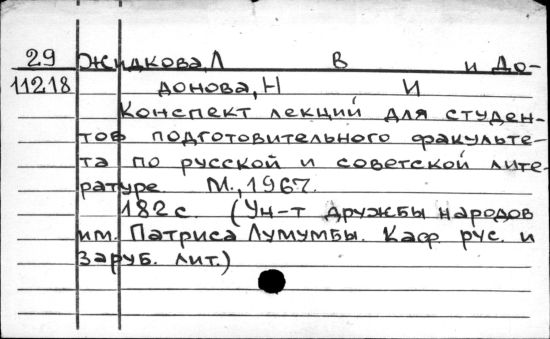 29 Жидкова, Л В и До-
11218 донова, Н И
Конспект лекций для студен-
тов подготовительного факульте-
та по русской и советской лите-
ратуре М., 1967.
182 с. (Ун-т дружбы народов
им. Патриса Лумумбы. Каф рус. и
заруб. лит.)